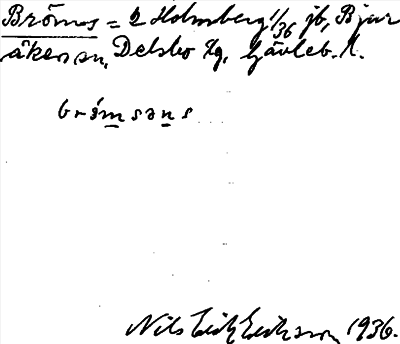 Brömns = 2 Holmberg 1/36 jb, Bjur
åker sn, Delsbo tg, Gävleb. l.
brömsəns
Nils Erik Eriksson 1936.